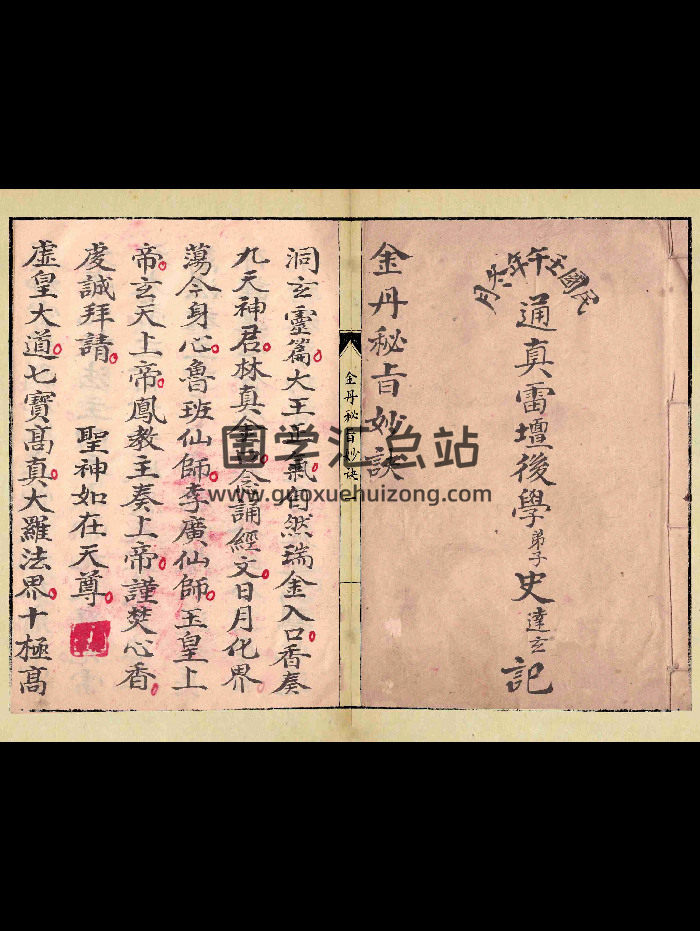 民國壬午年六月
通真雷壇後學弟子史達玄記
金丹秘旨妙訣
金丹秘旨妙訣
洞玄靈篇大王正氣自然瑞金入口香奏
九天神君林真金口念誦經文日月化界
蕩今身心魯班仙師李廣仙師玉皇上
帝玄天上帝鳳教主奏上帝謹焚心香
虔誠拜請 聖神如在天尊
虛皇大道七寶高真大羅法界十極高
国学汇总站
www.guoxuehuizong.com